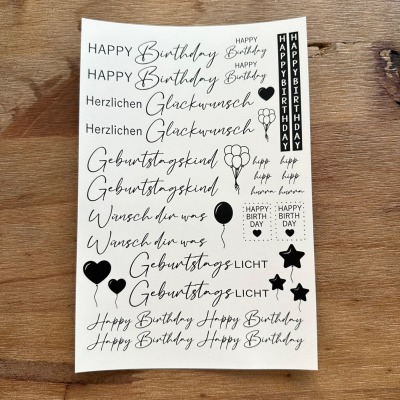 HAPPY Birthday
HAPPY Birthday
HAPPY Birthday
HAPPY Birthday
Herzlichen Glückwunsch
Herzlichen Glückwunsch
HAPPY BIRTHDAY
HAPPY BIRTHDAY
Geburtstagskind
Geburtstagskind
hipp hipp
hipp hipp
hurra hurra
Wünsch dir was
Wünsch dir was
HAPPY BIRTH DAY
HAPPY BIRTH DAY
Geburtstags LICHT
Geburtstags LICHT
Happy Birthday Happy Birthday
Happy Birthday Happy Birthday